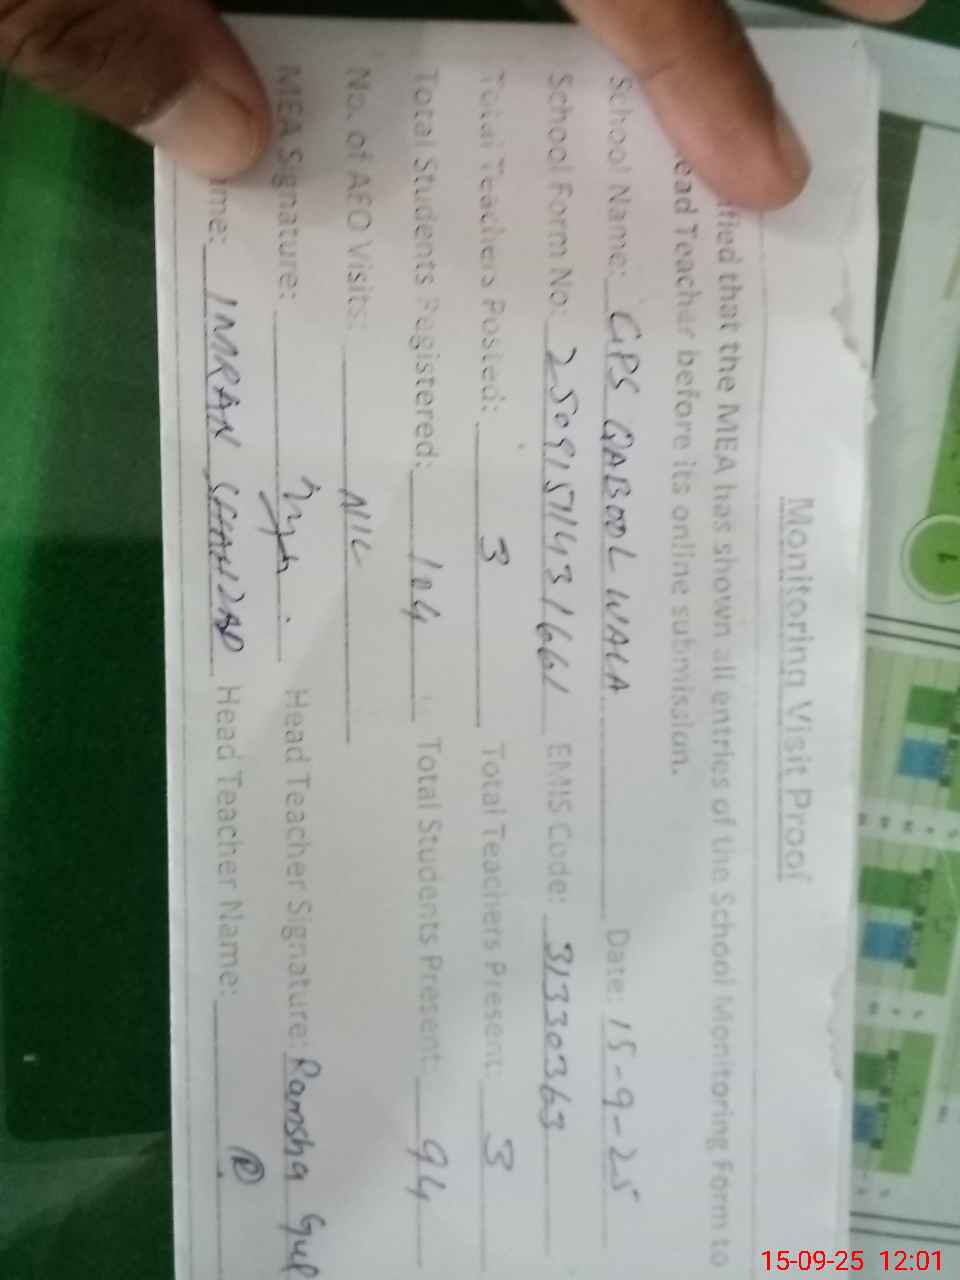 Monitoring Visit Proof
ified that the MEA has shown all entries of the School Monitoring Form to
ead Teacher before its online submission.
School Name: GPS QABOOL WALA Date: 15-9-25
School Form No: 25091571431661 EMIS Code: 31330363
Total Teachers Posted: 3 Total Teachers Present: 3
Total Students Registered: 104 Total Students Present: 94
No. of AEO Visits: NIL
MEA Signature: Head Teacher Signature: Ramsha Gul
ame: IMRAN SHAHZAD Head Teacher Name:
15-09-25 12:01